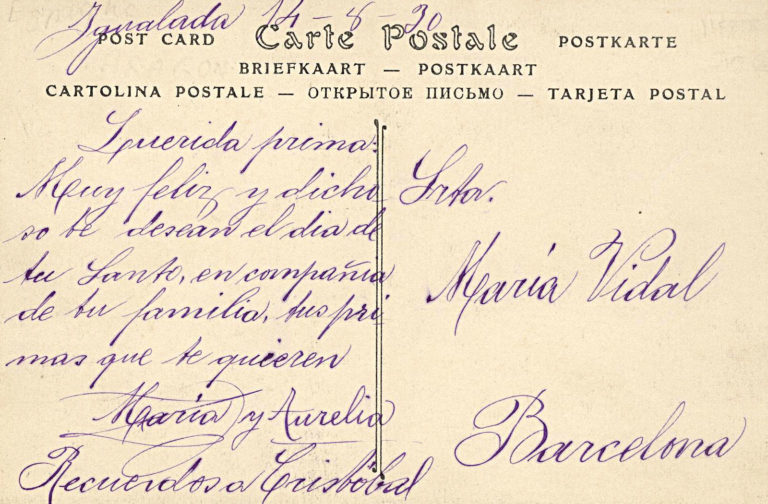 Igualada 14-8-30
POST CARD Carte Postale POSTKARTE
BRIEFKAART — POSTKAART
CARTOLINA POSTALE — ОТКРЫТОЕ ПИСЬМО — TARJETA POSTAL
Querida prima:
Muy feliz y dicho
so te desean el dia de
tu Santo, en compañia
de tu familia, tus pri
mas que te quieren
María y Aurelia
Recuerdos a Cristobal
Srta.
María Vidal
Barcelona